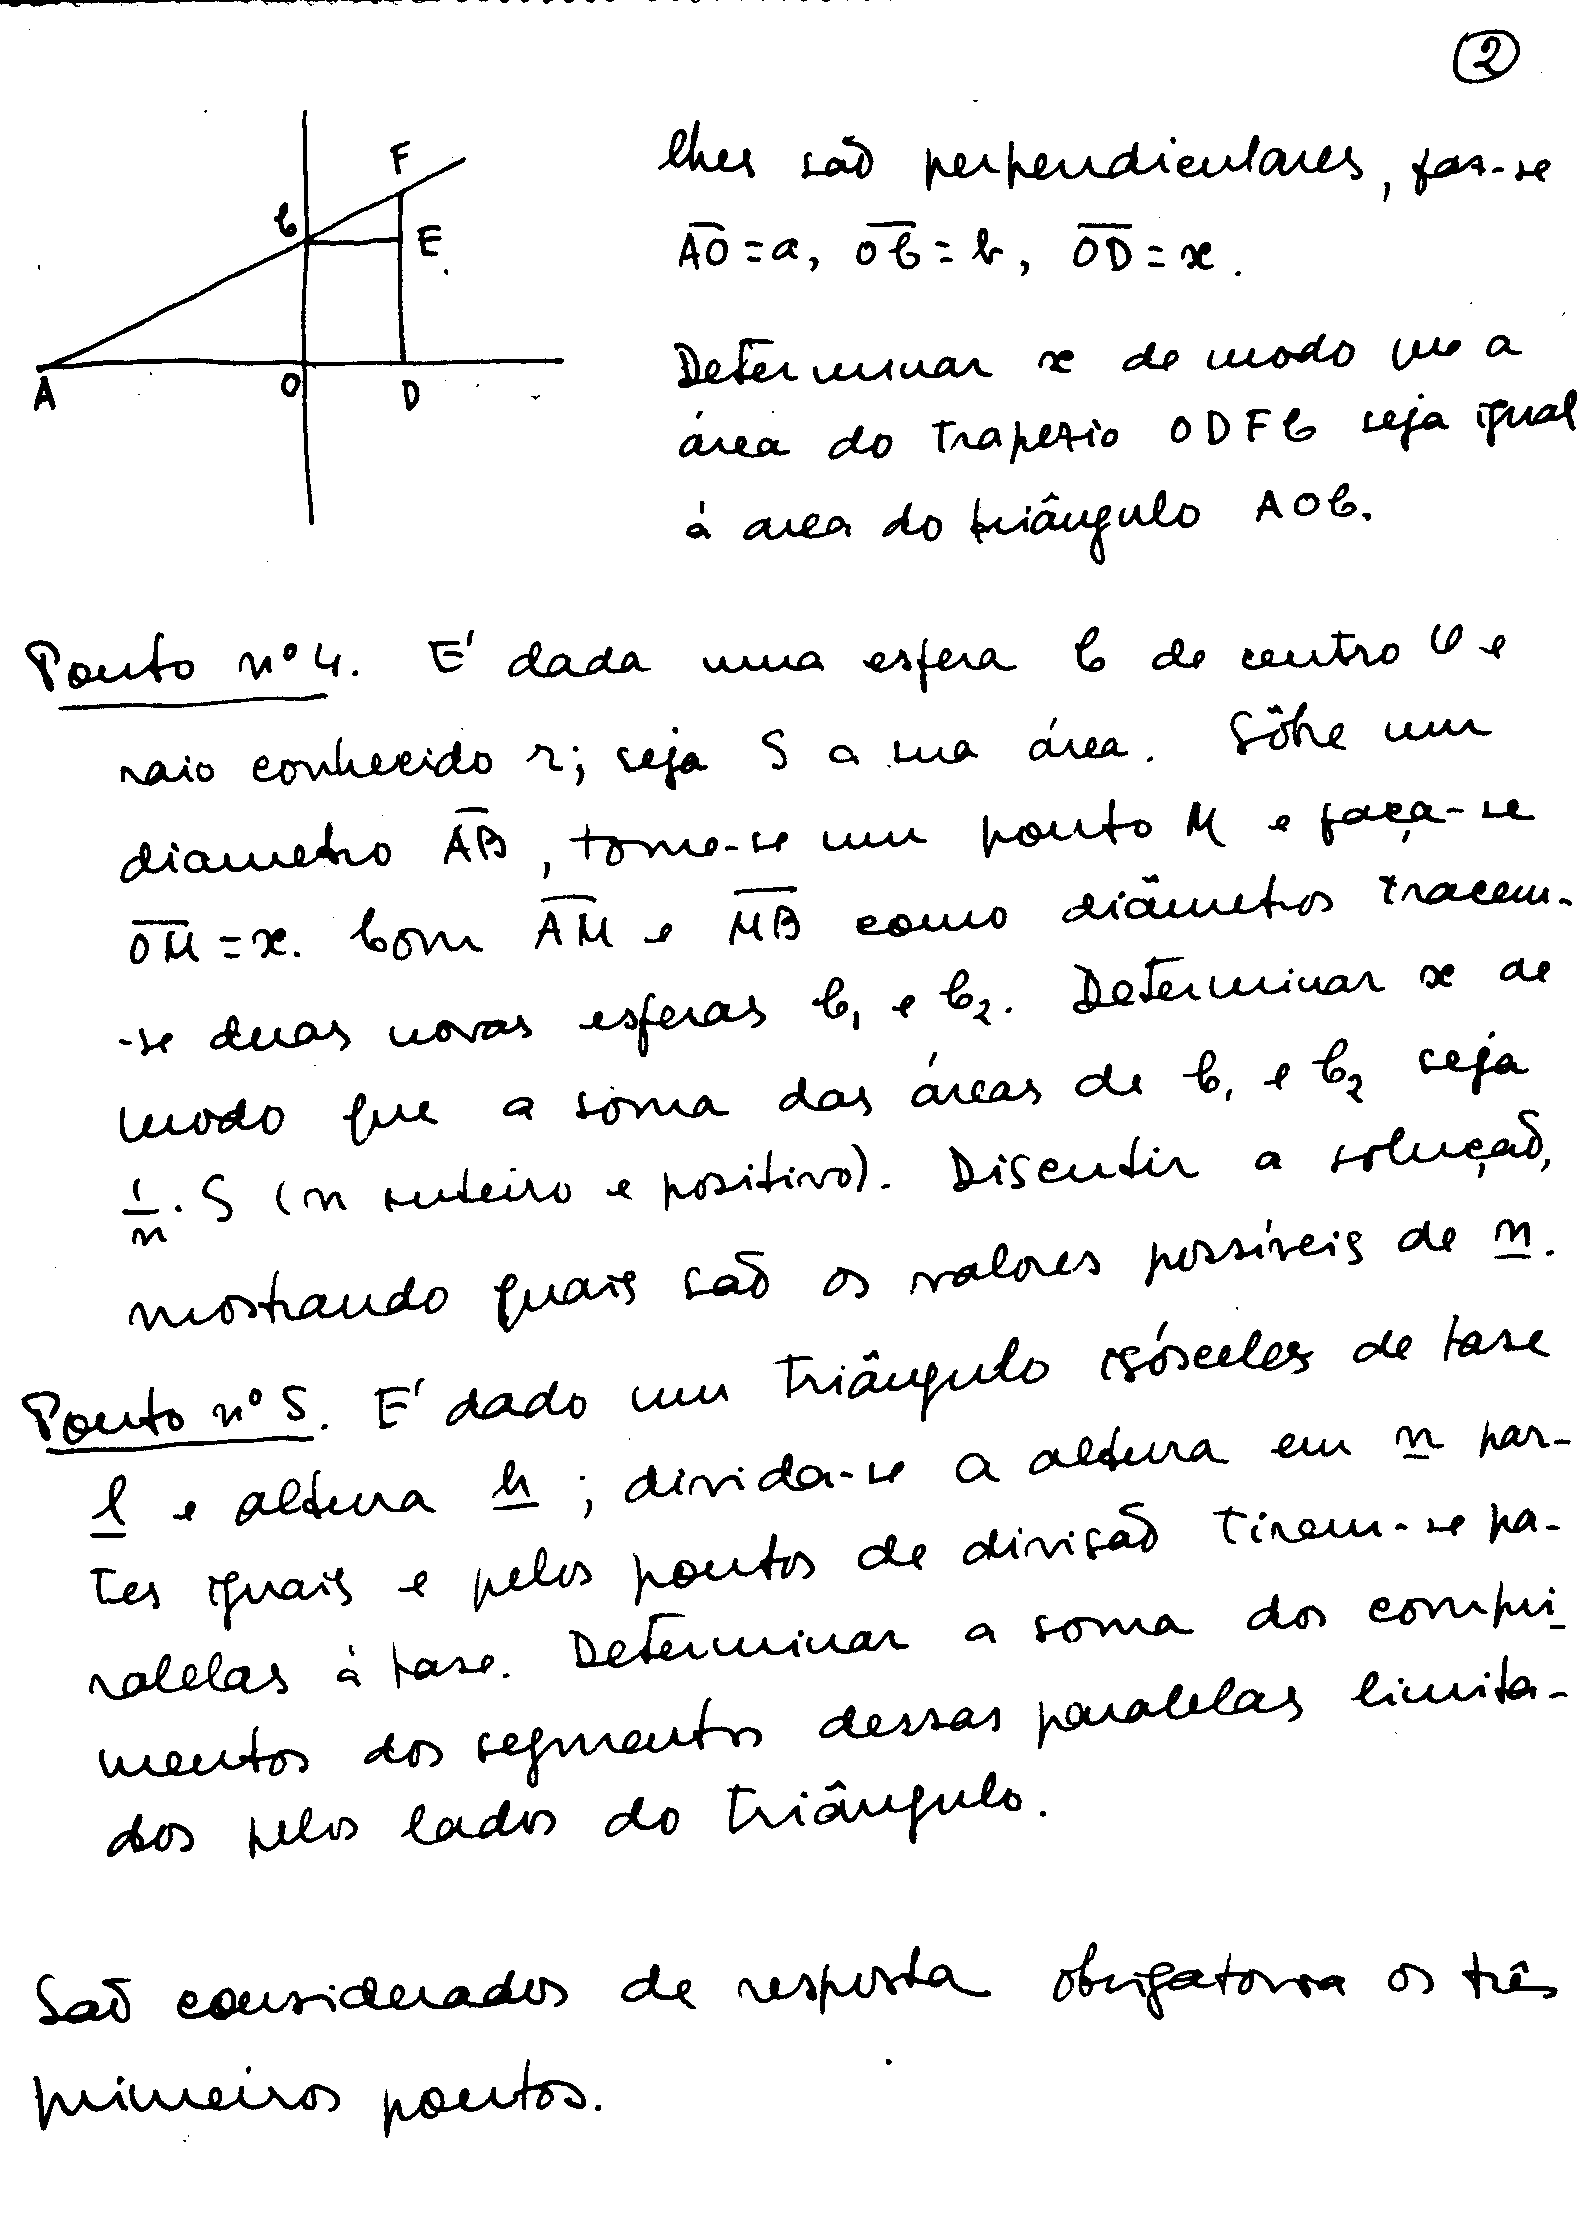 2
F
C
E
A
O
D
lhes são perpendiculares, faz-se
AO = a, OC = b, OD = x.
Determinar x de modo que a
área do trapezio ODFC seja igual
á area do triângulo AOC.
Ponto nº 4. E' dada uma esfera C de centro O e
raio conhecido r; seja S a sua área. Sôbre um
diametro AB, tome-se um ponto M e faça-se
OM = x. Com AM e MB como diâmetros tracem-
-se duas novas esferas C₁ e C₂. Determinar x de
modo que a soma das áreas de C₁ e C₂ seja
1/n . S (n inteiro e positivo). Discutir a solução,
mostrando quais são os valores possíveis de n.
Ponto nº 5. E' dado um triângulo isósceles de base
l e altura h ; divida-se a altura em n par-
tes iguais e pelos pontos de divisão tirem-se pa-
ralelas á base. Determinar a soma dos compri-
mentos dos segmentos dessas paralelas limita-
dos pelos lados do triângulo.
São considerados de resposta obrigatoria os três
primeiros pontos.